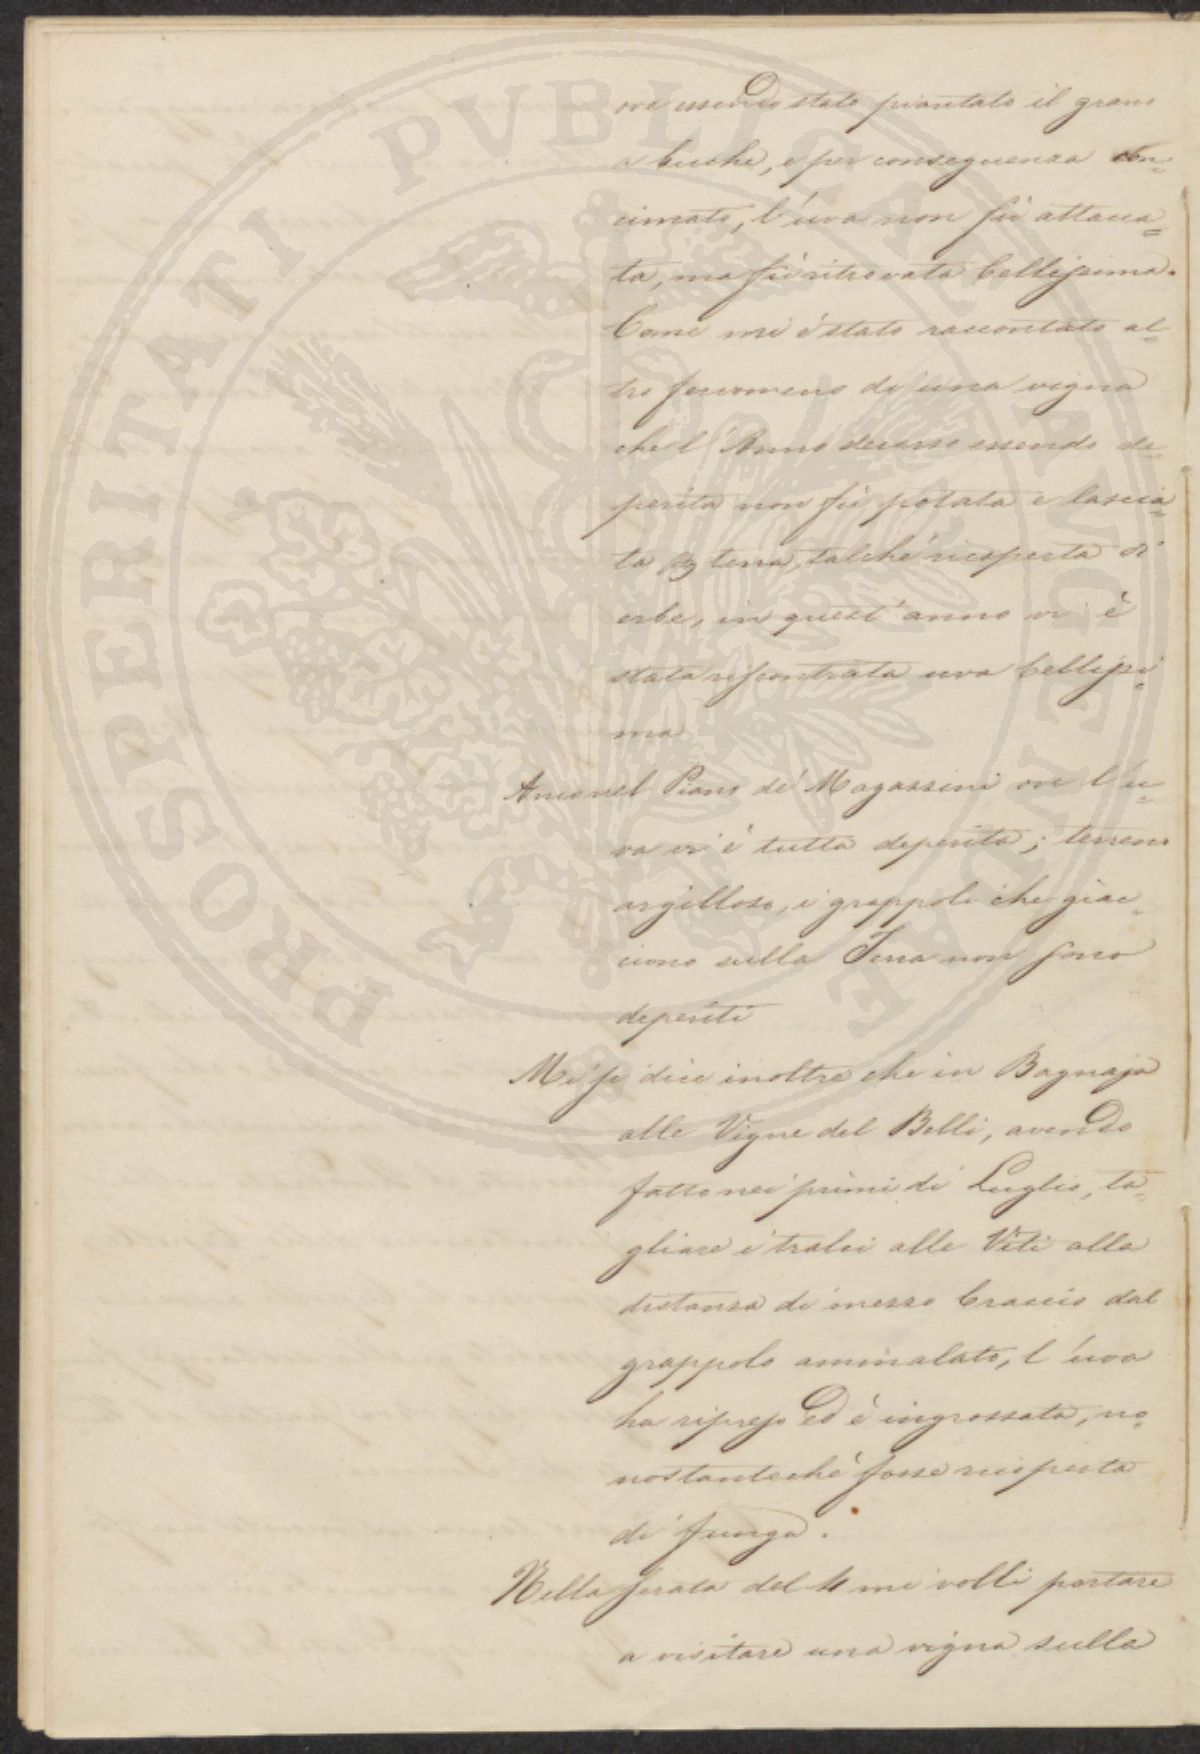 ove essendo stato piantato il grano
a buche, e per conseguenza con=
cimato, l'uva non fù attacca=
ta, ma fù ritrovata bellissima.
Come mi è stato raccontato al=
tro fenomeno di una vigna
che l'Anno decorso essendo de=
perita non fù potata e lascia=
ta p terra, talchè ricoperta di
erbe, in quest'anno vi è
stata riscontrata uva bellissi=
ma
Anco nel Piano de' Magazzini ove l'u=
va vi è tutta deperita; terreno
argilloso, i grappoli che giac=
ciono sulla Terra non sono
deperiti
Mi si dice inoltre che in Bagnaja
alle Vigne del Belli, avendo
fatto nei primi di Luglio, ta=
gliare i tralci alle Viti alla
distanza di mezzo braccio dal
grappolo ammalato, l'uva
ha ripreso ed è ingrossata, no=
nostante chè fosse ricoperta
di funga.
Nella serata del 4 mi volli portare
a visitare una vigna sulla
PROSPERITATI PVBLICAE AVGENDAE